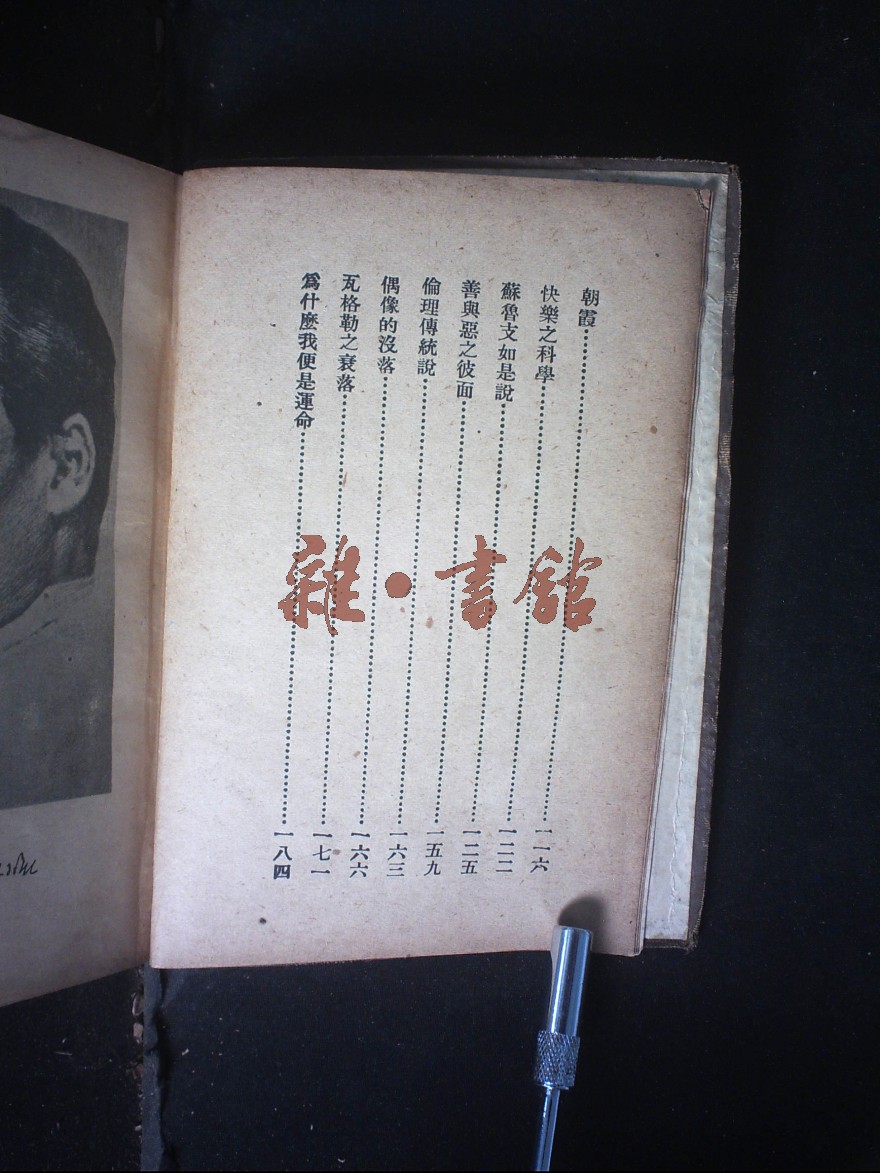 朝霞……一一六
快樂之科學……一二二
蘇魯支如是說……一二五
善與惡之彼面……一五九
倫理傳統說……一六三
偶像的沒落……一六六
瓦格勒之衰落……一七一
爲什麼我便是運命……一八四
雜·書館